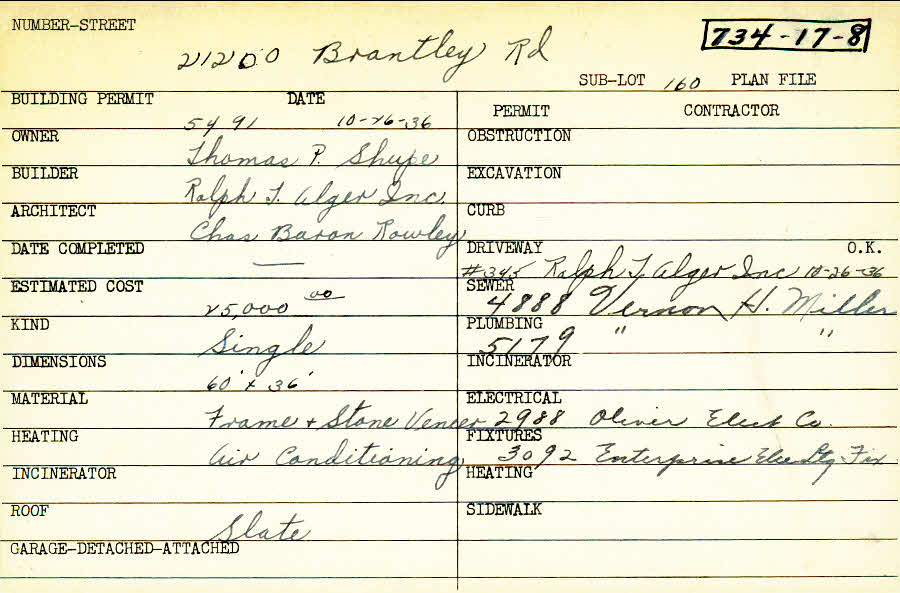 NUMBER-STREET
21200 Brantley Rd
734-17-8
SUB-LOT 160 PLAN FILE
BUILDING PERMIT DATE
5491 10-26-36
OWNER
Thomas P. Shupe
BUILDER
Ralph T. Alger Inc.
ARCHITECT
Chas Baron Rowley
DATE COMPLETED
—
ESTIMATED COST
25,000 00
KIND
Single
DIMENSIONS
60' x 36'
MATERIAL
Frame + Stone Veneer
HEATING
Air Conditioning
INCINERATOR
ROOF
Slate
GARAGE-DETACHED-ATTACHED
PERMIT CONTRACTOR
OBSTRUCTION
EXCAVATION
CURB
DRIVEWAY O.K.
#345 Ralph T. Alger Inc 10-26-36
SEWER
4888 Vernon H. Miller
PLUMBING
5179 " "
INCINERATOR
ELECTRICAL
2988 Oliver Elect Co.
FIXTURES
3092 Enterprise Elec Ltg Fix
HEATING
SIDEWALK